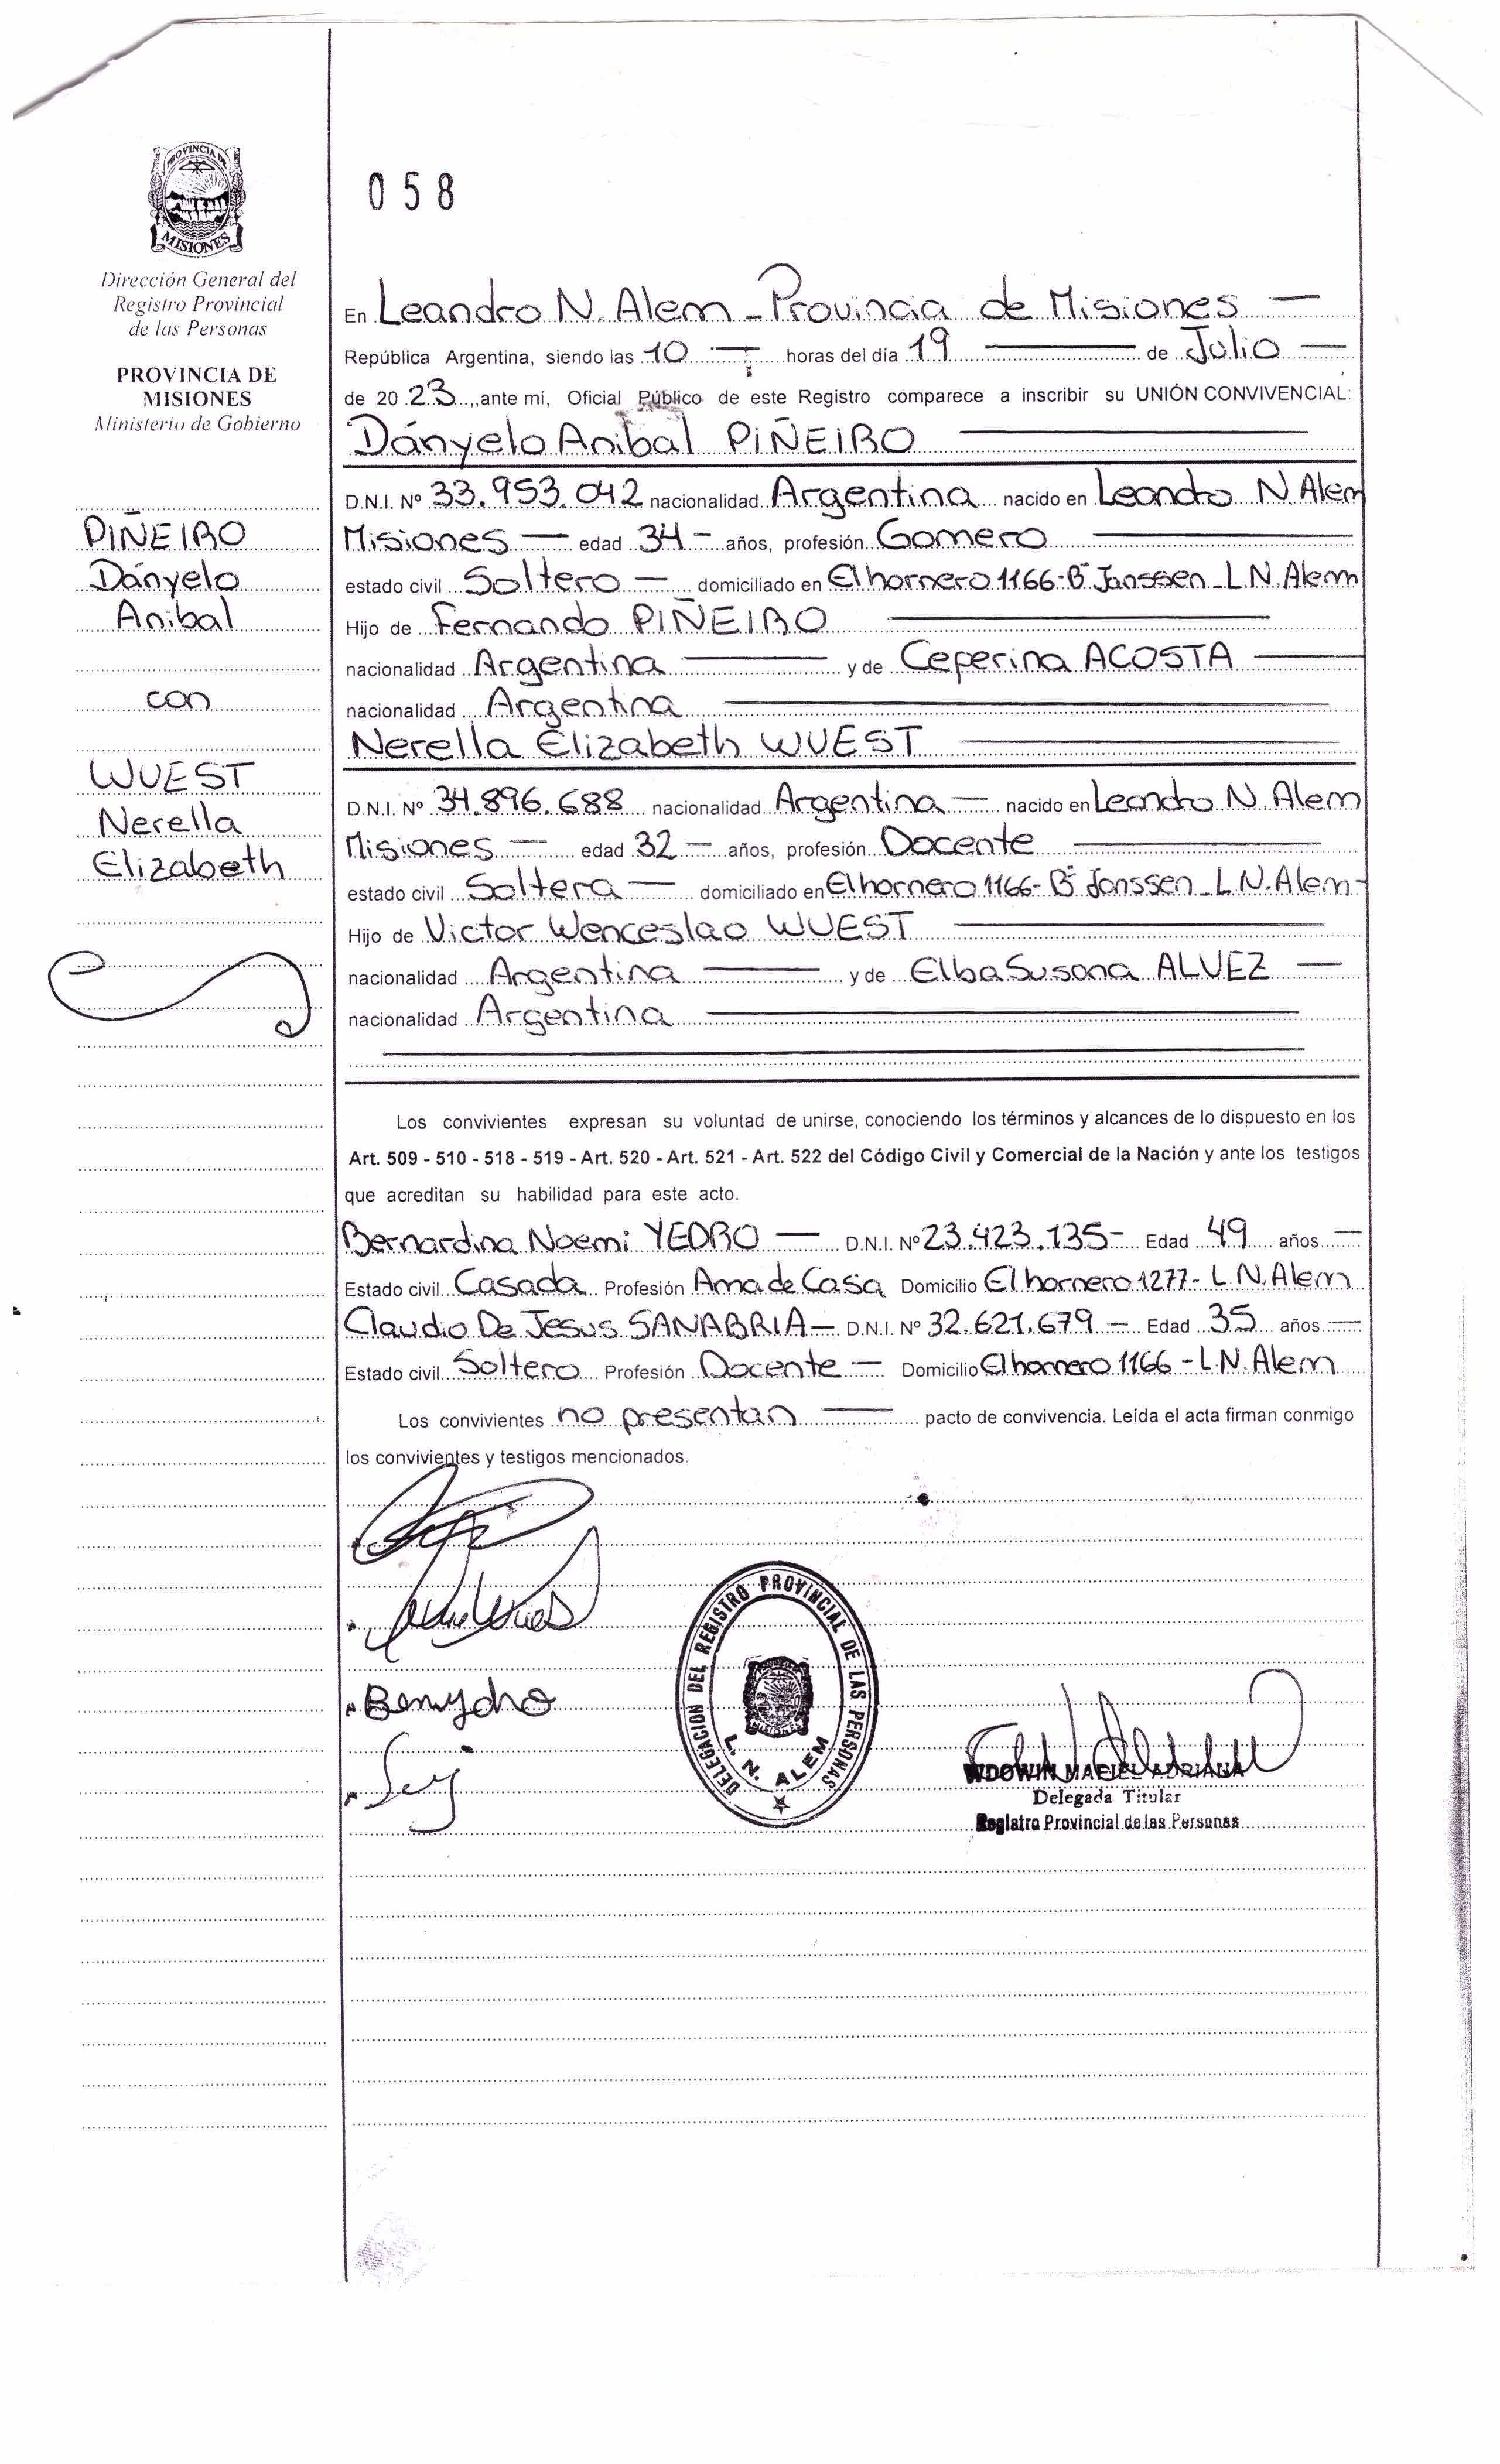 PROVINCIA DE
MISIONES
Dirección General del
Registro Provincial
de las Personas
PROVINCIA DE
MISIONES
Ministerio de Gobierno
PIÑEIRO
Dányelo
Anibal
con
WUEST
Nerella
Elizabeth
058
En Leandro N. Alem - Provincia de Misiones —
República Argentina, siendo las 10 — horas del día 19 — de Julio —
de 20 23, ante mí, Oficial Público de este Registro comparece a inscribir su UNIÓN CONVIVENCIAL:
Dányelo Anibal PIÑEIRO —
D.N.I. Nº 33.953.042 nacionalidad Argentina nacido en Leandro N Alem
Misiones — edad 34 - años, profesión Gomero —
estado civil Soltero — domiciliado en El hornero 1166-Bº Janssen - L.N. Alem
Hijo de Fernando PIÑEIRO —
nacionalidad Argentina — y de Ceperina ACOSTA —
nacionalidad Argentina —
Nerella Elizabeth WUEST —
D.N.I. Nº 34.896.688 nacionalidad Argentina — nacido en Leandro N. Alem
Misiones — edad 32 — años, profesión Docente —
estado civil Soltera — domiciliado en El hornero 1166- Bº Janssen - L.N. Alem -
Hijo de Victor Wenceslao WUEST —
nacionalidad Argentina — y de Elba Susana ALVEZ —
nacionalidad Argentina —
Los convivientes expresan su voluntad de unirse, conociendo los términos y alcances de lo dispuesto en los
Art. 509 - 510 - 518 - 519 - Art. 520 - Art. 521 - Art. 522 del Código Civil y Comercial de la Nación y ante los testigos
que acreditan su habilidad para este acto.
Bernardina Noemi YEDRO — D.N.I. Nº 23.423.135- Edad 49 años —
Estado civil Casada Profesión Ama de Casa Domicilio El hornero 1277- L.N. Alem
Claudio De Jesus SANABRIA — D.N.I. Nº 32.621.679 — Edad 35 años —
Estado civil Soltero Profesión Docente — Domicilio El hornero 1166 - L.N. Alem
Los convivientes no presentan — pacto de convivencia. Leída el acta firman conmigo
los convivientes y testigos mencionados.
DELEGACION DEL REGISTRO PROVINCIAL DE LAS PERSONAS
L. N. ALEM
WDOWIN MACIEL ADRIANA
Delegada Titular
Registro Provincial de las Personas